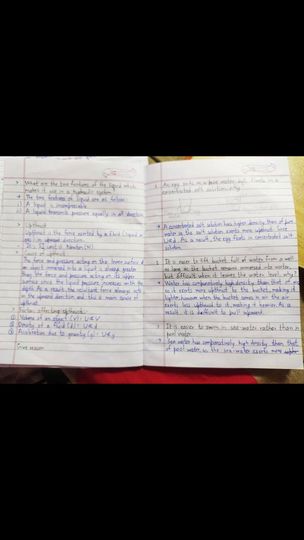 > What are the two features of the liquid which
makes it use in a hydraulic system?
→ The two features of liquid are as follow
i) A liquid is incompressible
ii) A liquid transmits pressure equally in all direction
> Upthrust
Upthrust is the force exerted by a fluid (liquid or
gas) in upward direction.
→ It's SI unit is Newton (N)
> Cause of upthrust
The force and pressure acting on the lower surface of
an object immersed into a liquid is always greater
than the force and pressure acting on its upper
surface since the liquid pressure increases with the
depth. As a result, the resultant force always acts
in the upward direction and this is main cause of
upthrust.
> Factor affecting upthrust:
① Volume of an object (v): U∝V
② Density of a fluid (d): U∝d
③ Acceleration due to gravity (g): U∝g
Give reason
1. An egg sinks in a pure water but floats in a
concentrated salt solution. why
→ A concentrated salt solution has higher density than of pure
water so the salt solution exerts more upthrust. Since
U∝d. As a result, the egg floats in concentrated salt
solution.
2. It is easier to lift bucket full of water from a well
as long as the bucket remains immersed into water,
but difficult when it leaves the water level, why?
→ Water has comparatively high density than that of air
so it exerts more upthrust to the bucket, making it
lighter, however when the bucket comes in air the air
exerts less upthrust to it, making it heavier. As a
result, it is difficult to pull upward.
3. It is easier to swim in sea water rather than in
pool water.
→ Sea water has comparatively high density than that
of pool water, so the sea water exerts more upthrust